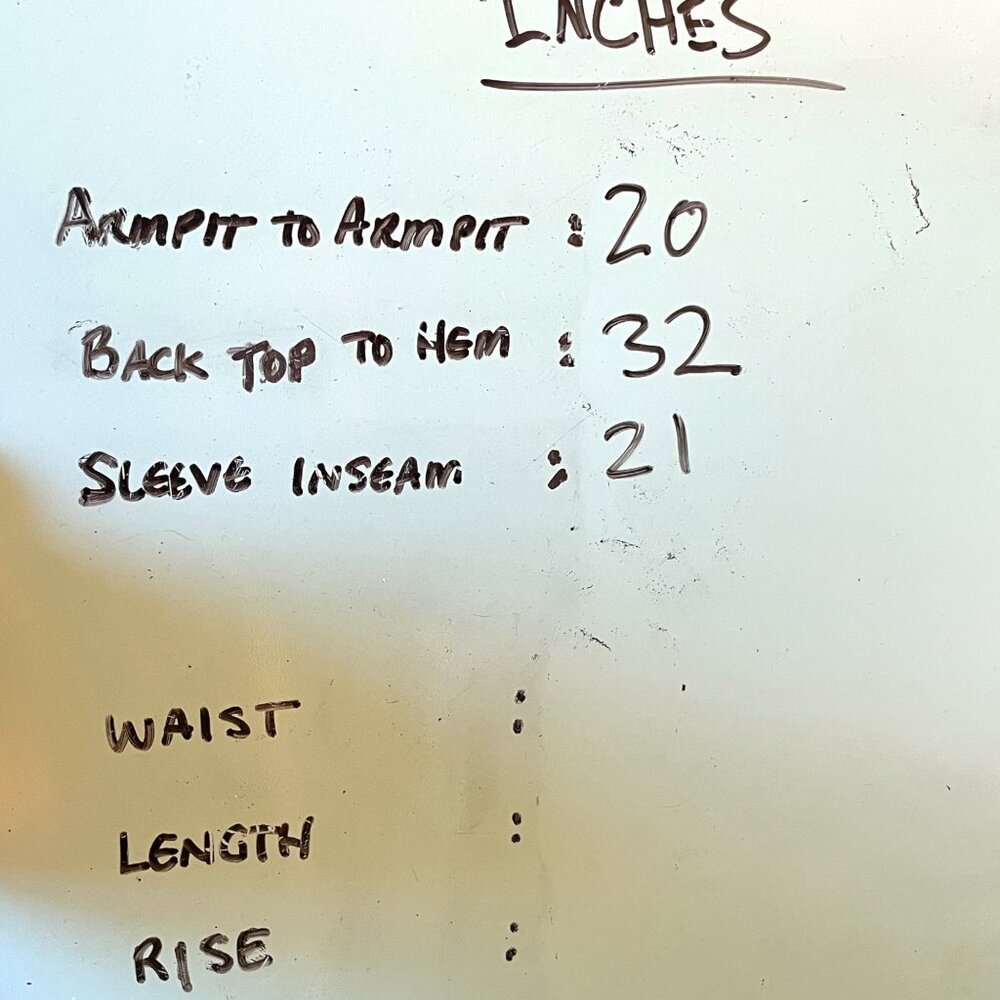 INCHES
ARMPIT TO ARMPIT : 20
BACK TOP TO HEM : 32
SLEEVE INSEAM : 21
WAIST :
LENGTH :
RISE :